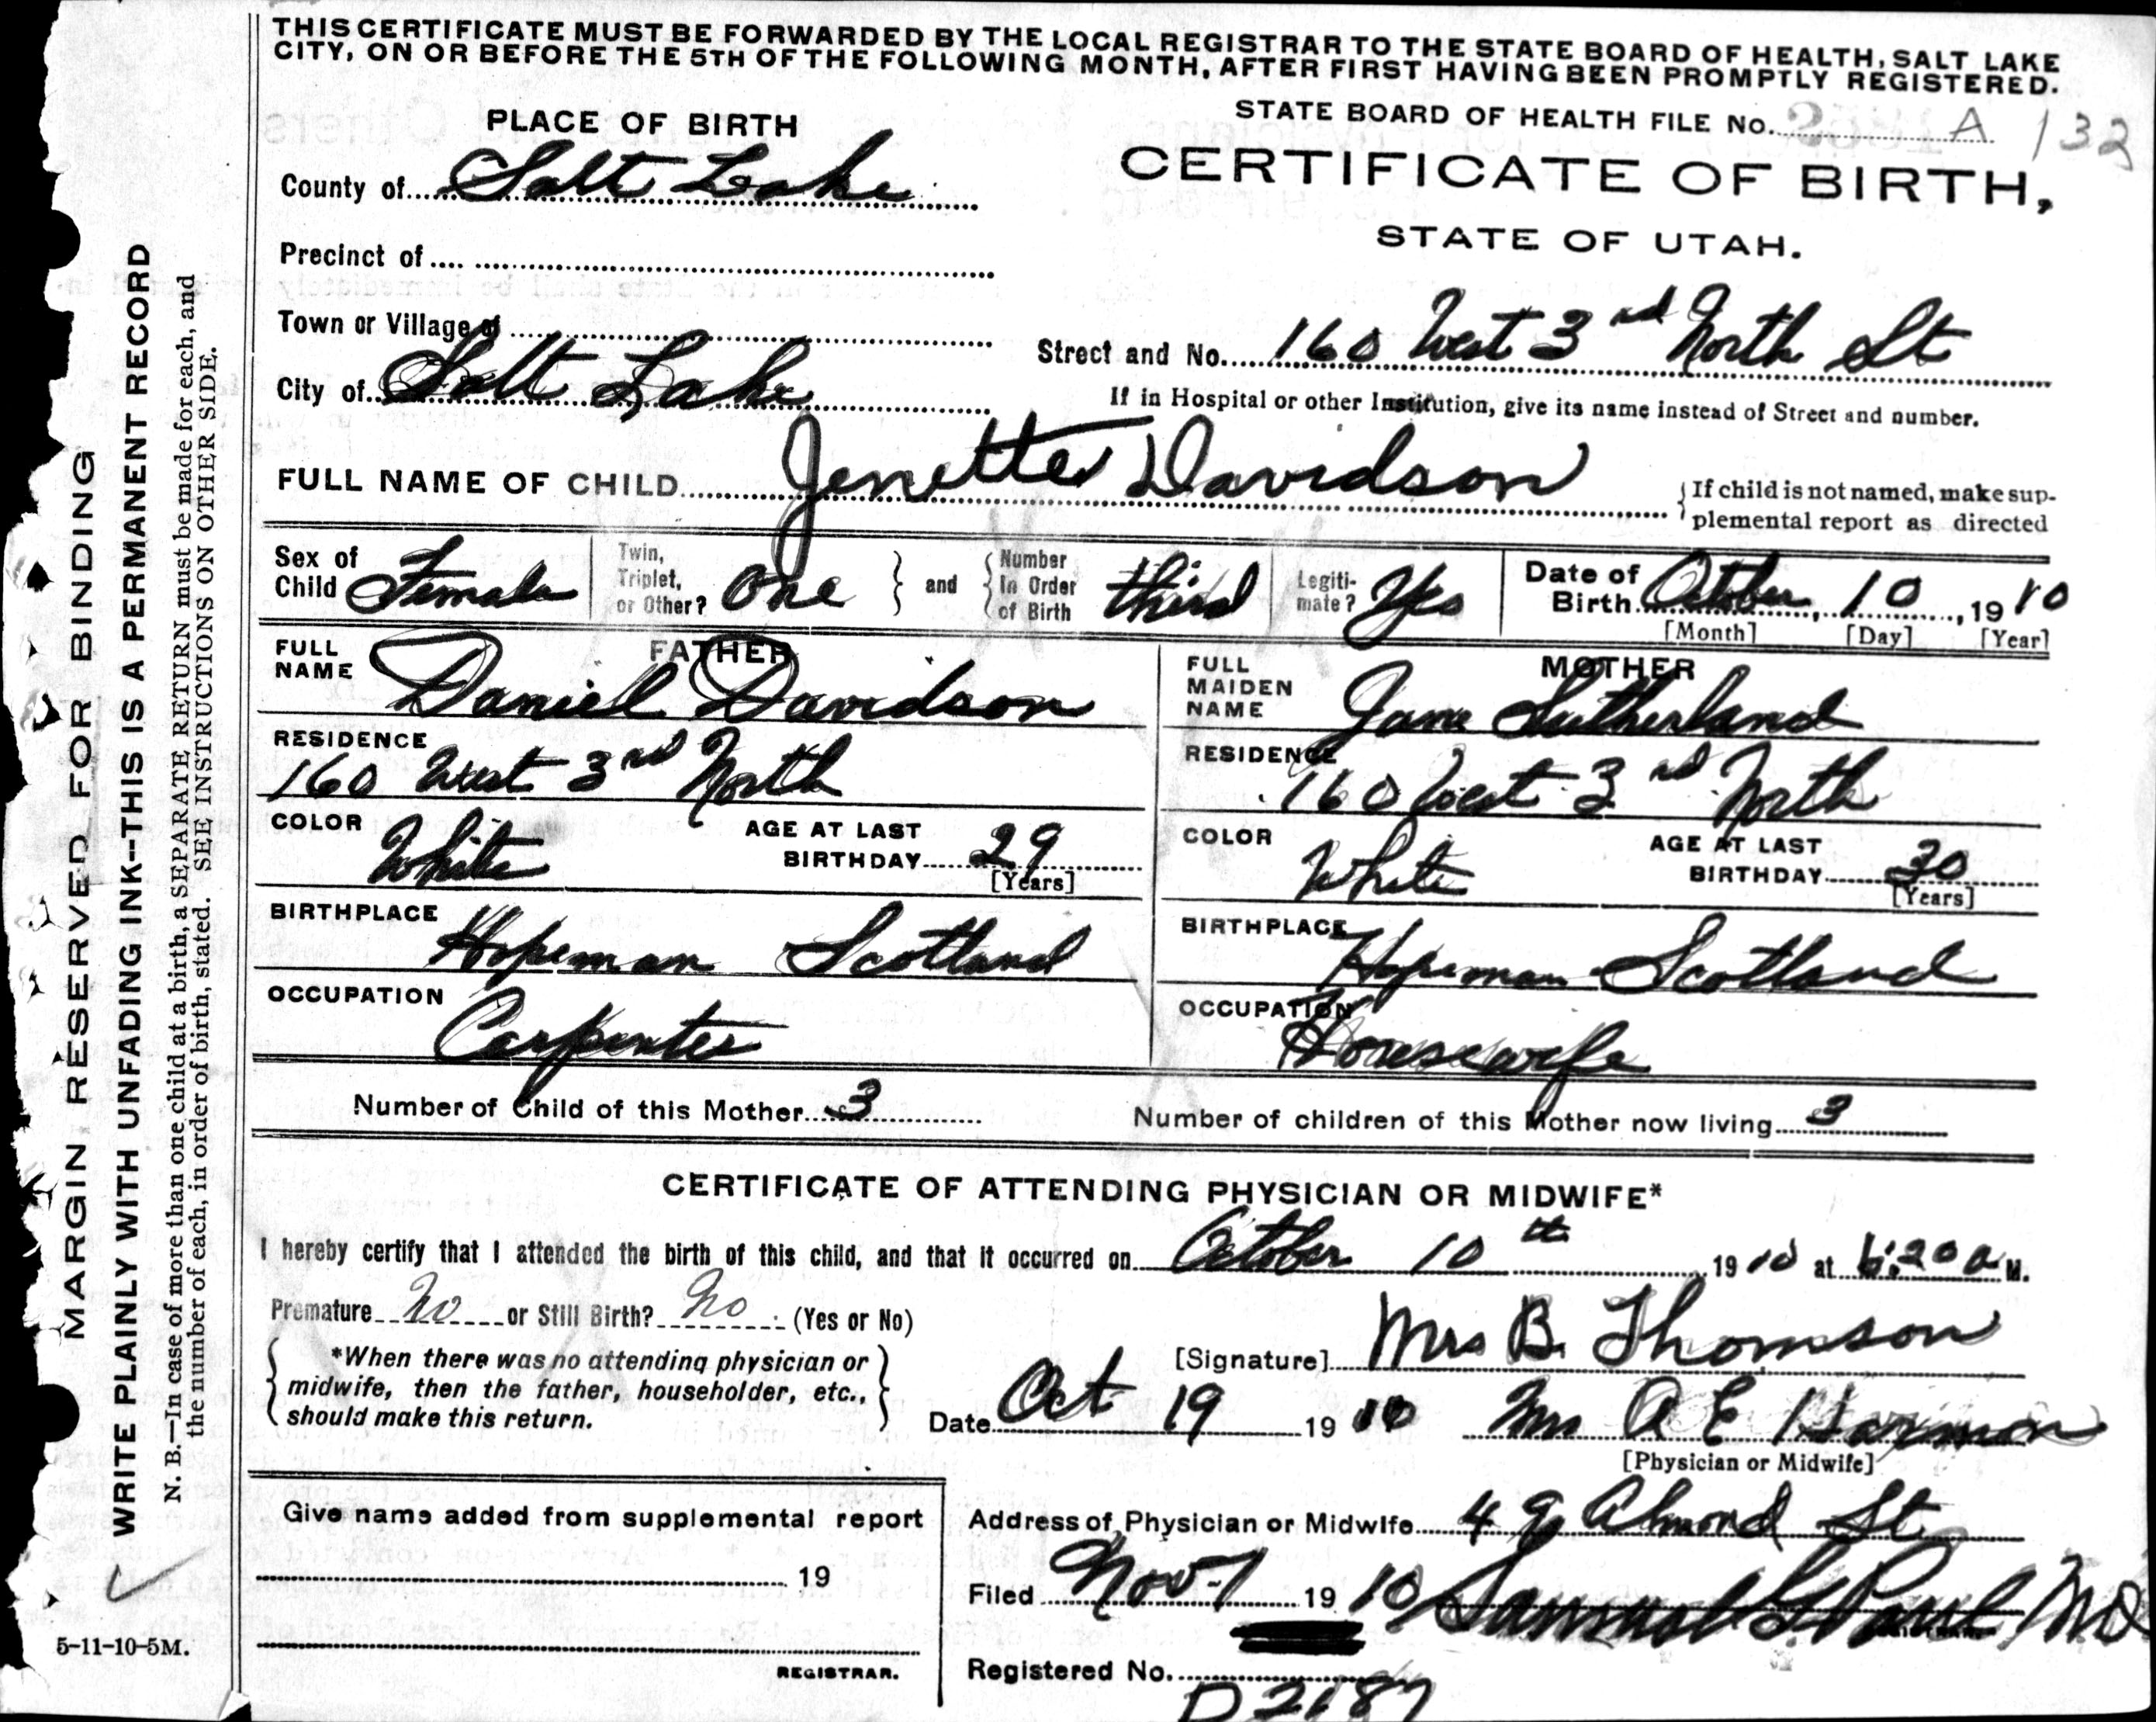 THIS CERTIFICATE MUST BE FORWARDED BY THE LOCAL REGISTRAR TO THE STATE BOARD OF HEALTH, SALT LAKE
CITY, ON OR BEFORE THE 5TH OF THE FOLLOWING MONTH, AFTER FIRST HAVING BEEN PROMPTLY REGISTERED.
PLACE OF BIRTH
STATE BOARD OF HEALTH FILE No. A 132
County of Salt Lake
CERTIFICATE OF BIRTH,
STATE OF UTAH.
Precinct of
Town or Village of
Street and No. 160 West 3rd North St
City of Salt Lake
If in Hospital or other Institution, give its name instead of Street and number.
FULL NAME OF CHILD Jenette Davidson
If child is not named, make sup-
plemental report as directed
Sex of Child Female
Twin, Triplet, or Other? One and Number In Order of Birth third
Legiti-mate? Yes
Date of Birth October 10, 1910
[Month] [Day] [Year]
FATHER
FULL NAME Daniel Davidson
RESIDENCE
160 West 3rd North
COLOR White
AGE AT LAST BIRTHDAY 29
[Years]
BIRTHPLACE Hopeman Scotland
OCCUPATION Carpenter
MOTHER
FULL MAIDEN NAME Jane Sutherland
RESIDENCE
160 West 3rd North
COLOR White
AGE AT LAST BIRTHDAY 30
[Years]
BIRTHPLACE Hopeman Scotland
OCCUPATION Housewife
Number of Child of this Mother 3
Number of children of this Mother now living 3
CERTIFICATE OF ATTENDING PHYSICIAN OR MIDWIFE*
I hereby certify that I attended the birth of this child, and that it occurred on October 10th 1910 at 6:20 a M.
Premature No or Still Birth? No (Yes or No)
*When there was no attending physician or
midwife, then the father, householder, etc.,
should make this return.
[Signature] Mrs B. Thomson
Date Oct 19 1910
Mrs A E Harmon
[Physician or Midwife]
Give name added from supplemental report
19
REGISTRAR.
Address of Physician or Midwife 49 Almond St
Filed Nov-1 1910 Samuel G Paul MD
Registered No.
D2187
MARGIN RESERVED FOR BINDING
WRITE PLAINLY WITH UNFADING INK--THIS IS A PERMANENT RECORD
N. B.—In case of more than one child at a birth, a SEPARATE RETURN must be made for each, and
the number of each, in order of birth, stated. SEE INSTRUCTIONS ON OTHER SIDE.
5-11-10-5M.